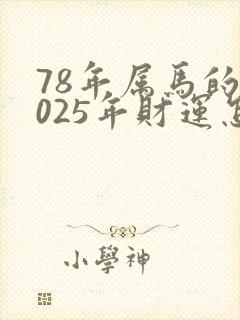 78年属馬的
025年財運
小學神